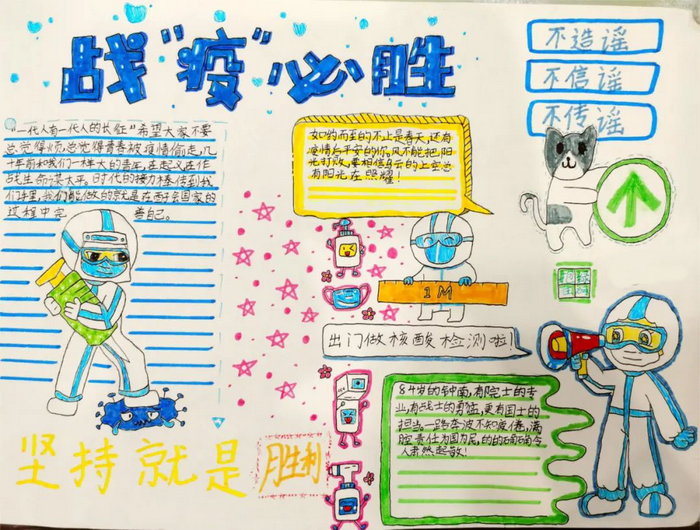 战"疫"必胜
不造谣
不信谣
不传谣
"一代人有一代人的长征"希望大家不要
总觉得烦总觉得青春被疫情偷走,几
十年前和我们一样大的青年,在起义在作
战生命谋太平,时代的接力棒传到我
们手里,我们能做的就是在两难国家的
过程中完善自己。
如约而至的不止是春天,还有
疫情后平安的你,风不能把阳
光打败,要相信乌云的上空总
有阳光在照耀!
1M
出门做核酸检测啦!
84岁的钟南,有院士的专
业,有战士的勇猛,更有国士的
担当一路奔波不知疲倦,满
腔责任为国为民,的的确确令
人肃然起敬!
坚持就是
胜利